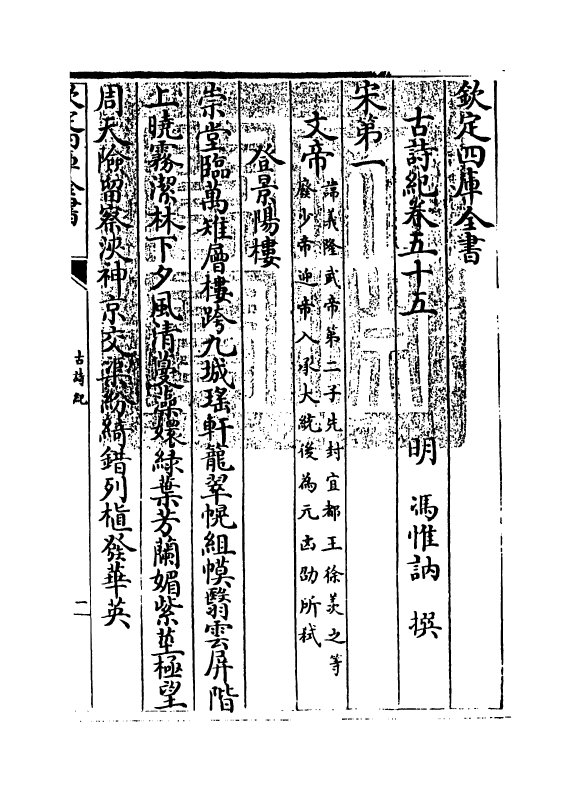 欽定四庫全書
古詩紀卷五十五　明　馮惟訥　撰
宋第一
文帝
諱義隆武帝第二子先封宜都王徐羨之等
廢少帝迎帝入承大統後為元凶劭所弑
登景陽樓
崇堂臨萬雉層樓跨九城瑤軒龍翠幌組幙翳雲屏階
上曉霧潔林下夕風清蔓藻嬛綠葉芳蘭媚紫莖極望
周天險留察浹神京交渠紛綺錯列植發華英
欽定四庫全書
古詩紀